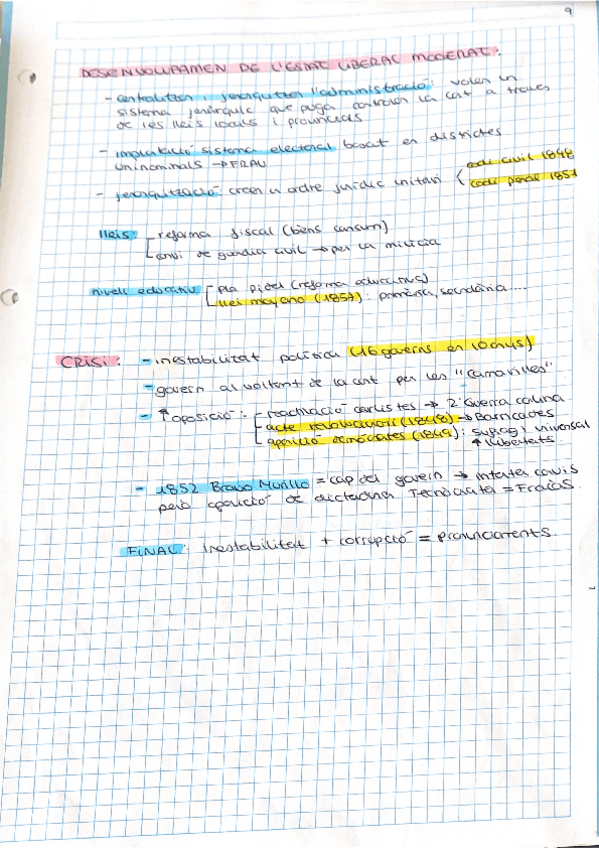 9
DESENVOLUPAMEN DE L'ESTAT LIBERAL MODERAT:
- centralitzen i jerarquitzen l'administració: volen un
sistema jeràrquic que puga controlar la cort a traves
de les lleis locals i provincials
- implantació sistema electoral basat en districtes
uninominals → FRAU
- jerarquització creen un ordre jurídic unitari { codi civil 1848
codi penal 1851
lleis: reforma fiscal (béns consum)
canvi de guardia civil → per la milicia
nivell educatiu pla pidal (reforma educativa)
llei moyano (1857): primària, secundària....
CRISI: - inestabilitat política (16 governs en 10 anys)
- govern al voltant de la cort per les "camarilles"
- ↑ oposició: reactivació carlistes → 2ª Guerra carlina
acte revolucionari (1848) → Barricades
aparició demòcrates (1849): sufragi universal
↑ llibertats.
- 1852 Bravo Murillo = cap del govern → intenta canvis
però aparició de dictadura Tecnòcrata = Fracàs.
FINAL: inestabilitat + corrupció = pronunciaments.